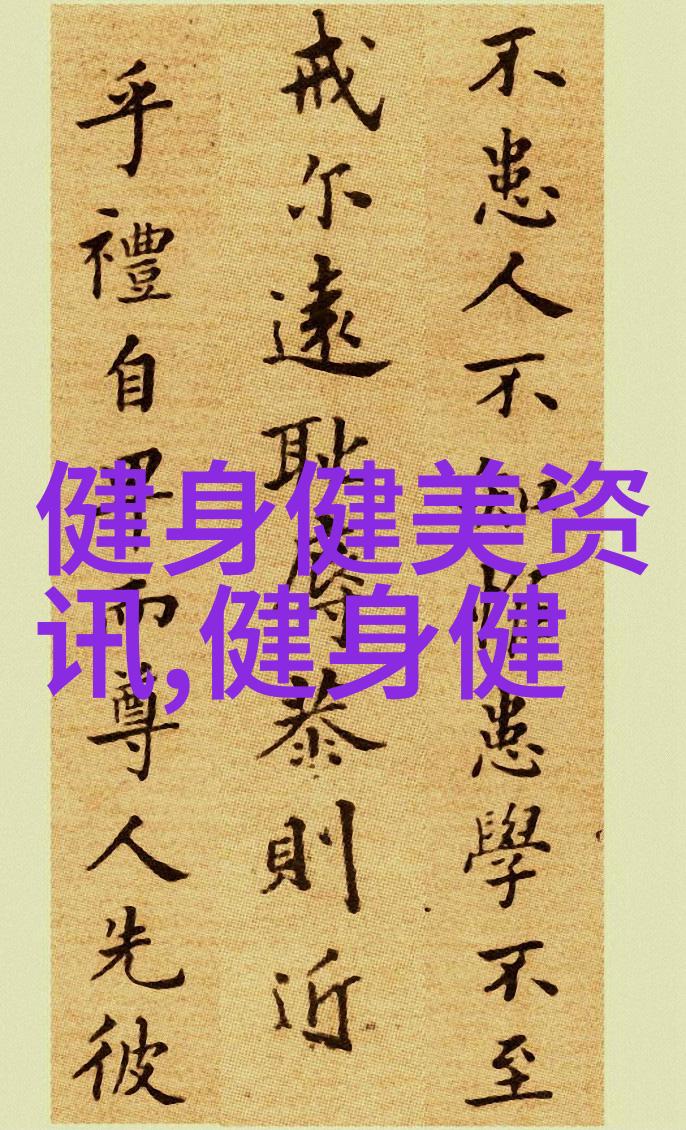 不患人不知惟患學不至
戒尔遠耻辱恭則近
乎禮自卑而尊人先彼
健身健美资
讯,健身健